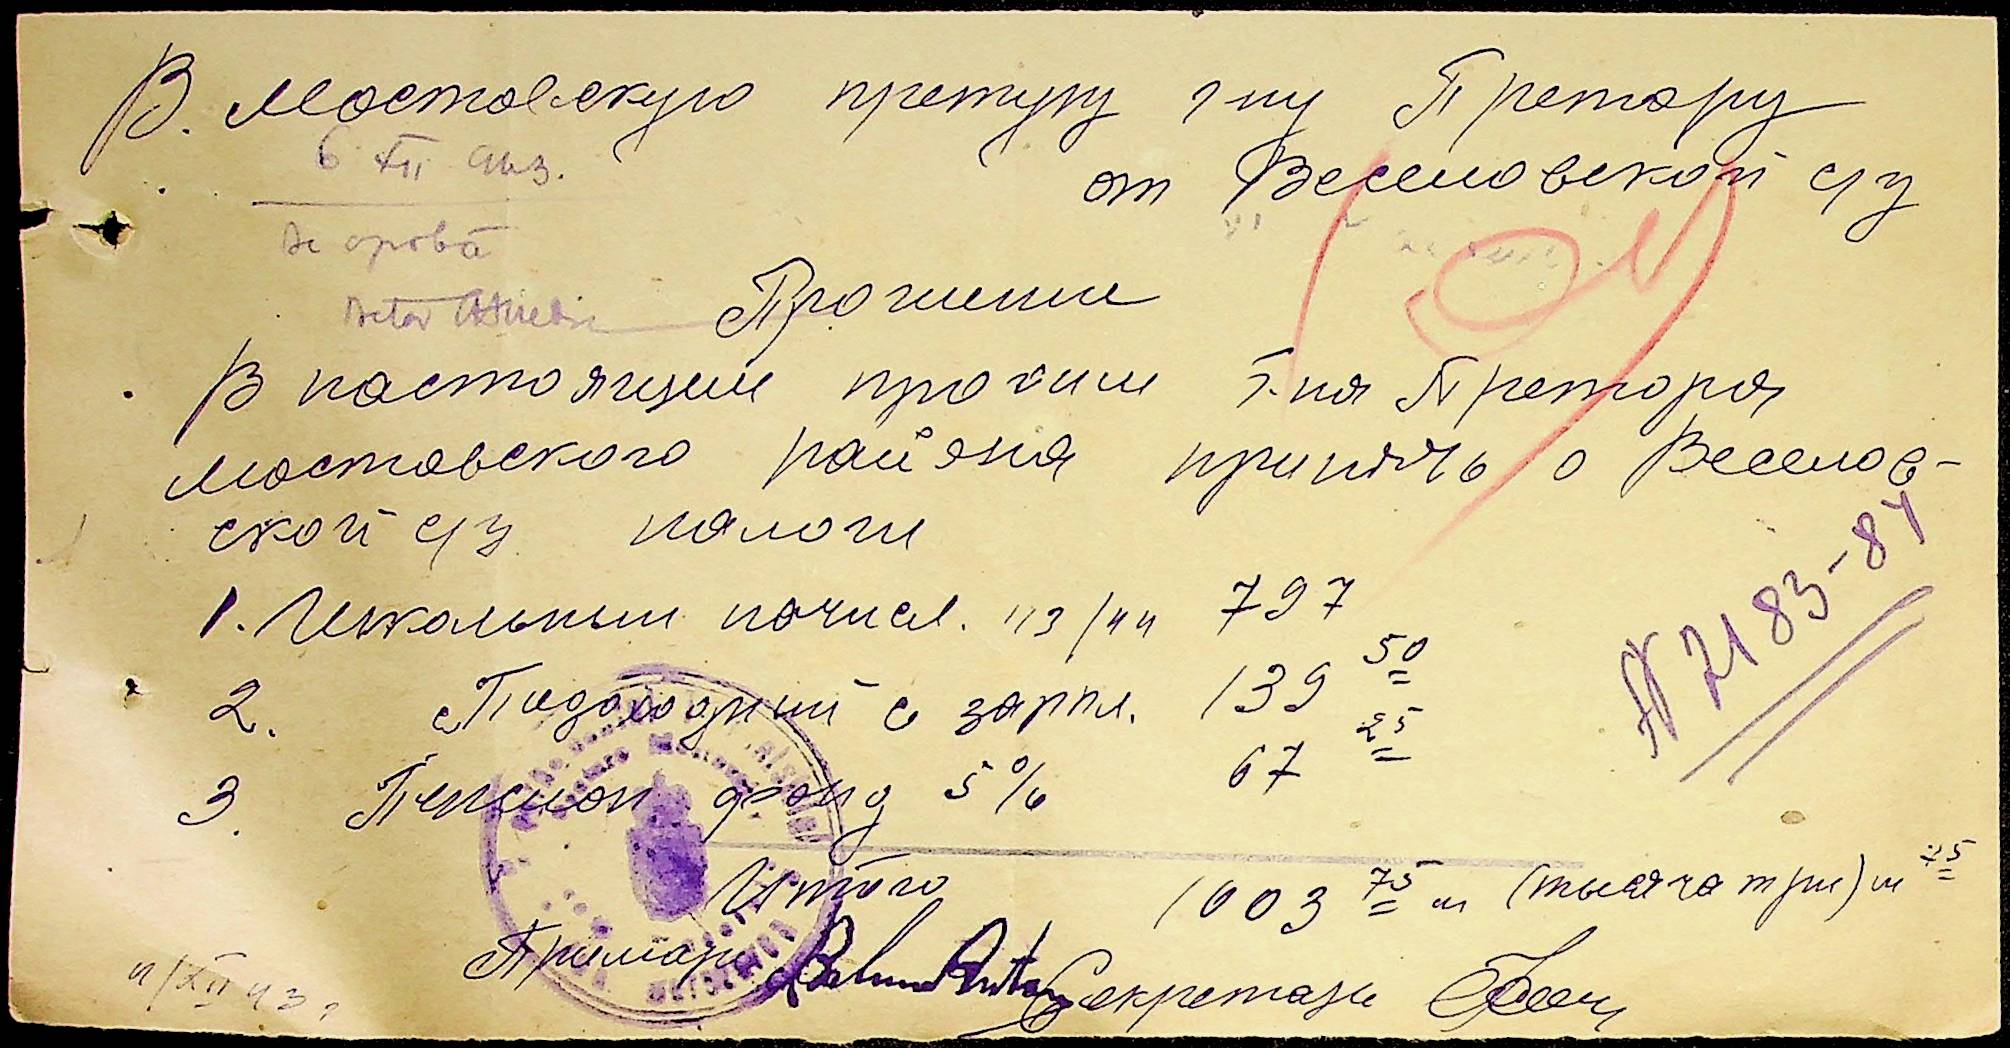 В. Мостовскую претуру г-ну Претору
6 XII 943.
от Веселовской с/у
Se aprobă
Прошение
В настоящим просим г-на Претора
Мостовского района принять о Веселов-
ской с/у налоги
1. Школьный начисл. 43/44 797
2. Подоходний с зарпл. 139 50
3. Пенсион фонд 5% 67 25
N 2183-84
Итого 1003 75 м (тысяча три) м 75
Примарь
Секретарь
4/XII 43г